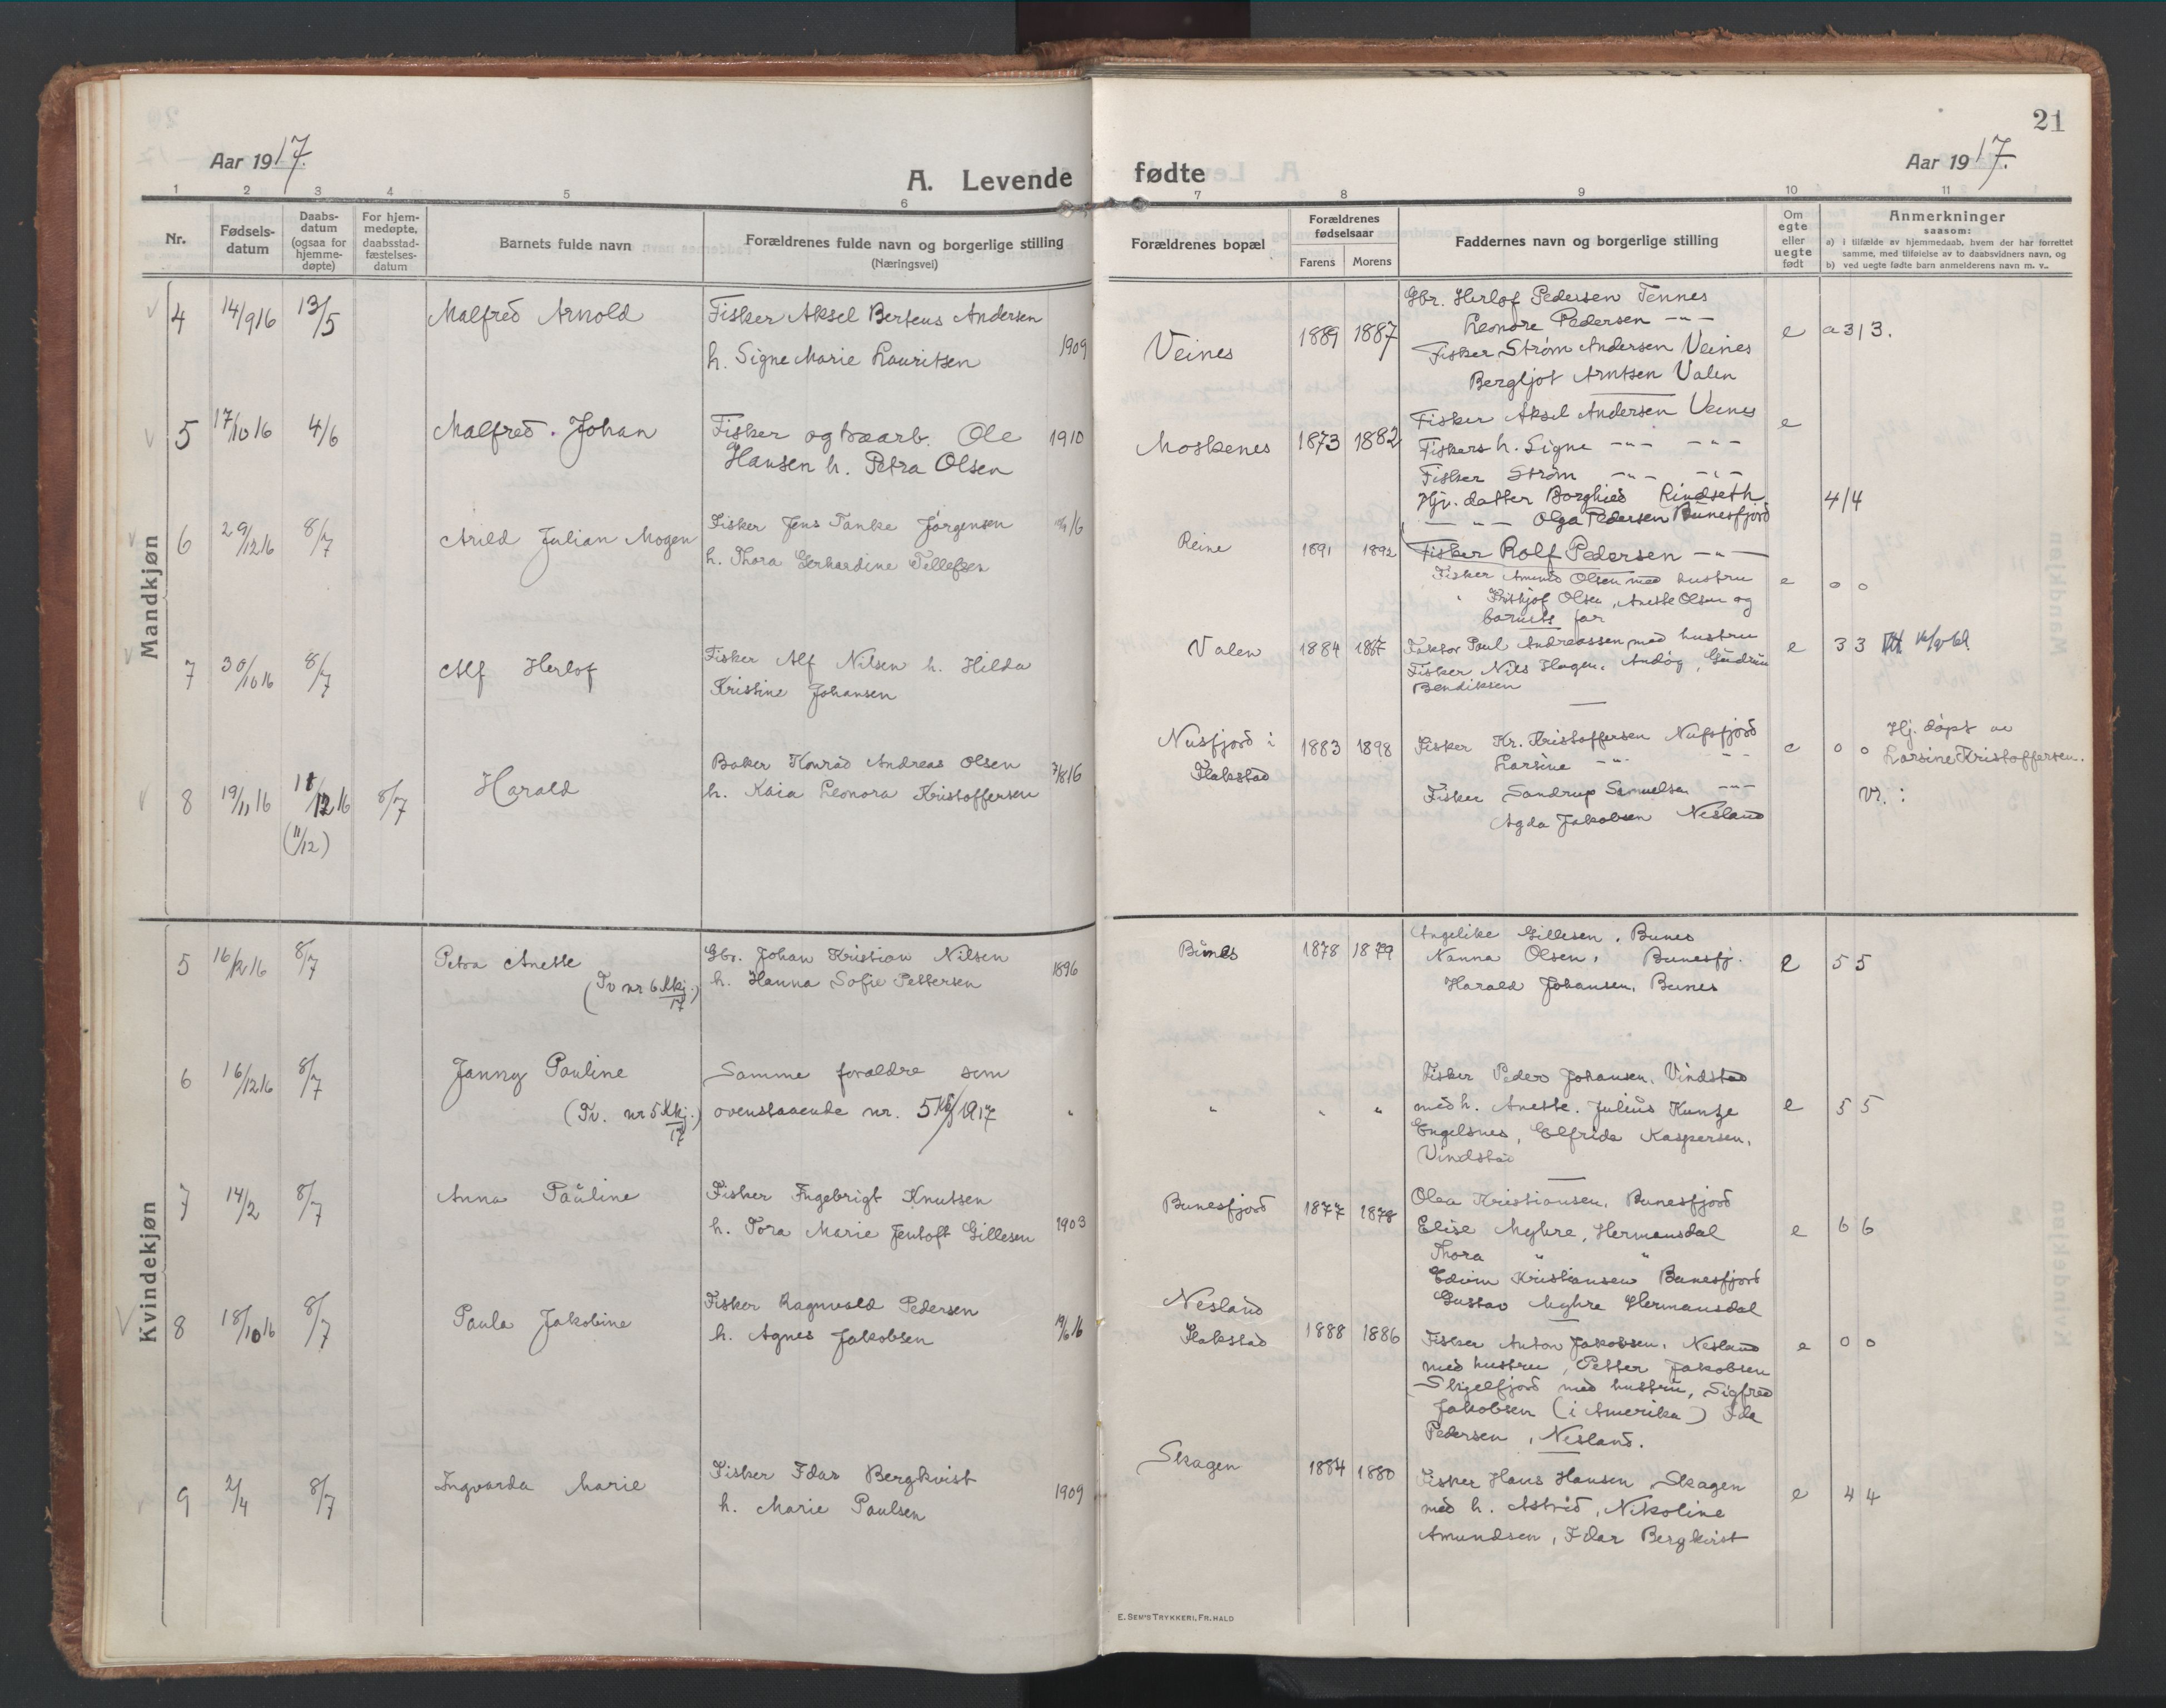 21
Aar 1917.
A. Levende
fødte
Aar 1917.
1 2 3 4 5 6 7 8 9 10 11
Nr.
Fødsels-
datum
Daabs-
datum
(ogsaa for
hjemme-
døpte)
For hjem-
medøpte,
daabsstad-
fæstelses-
datum
Barnets fulde navn
Forældrenes fulde navn og borgerlige stilling
(Næringsvei)
Forældrenes bopæl
Forældrenes
fødselsaar
Farens Morens
Faddernes navn og borgerlige stilling
Om
egte
eller
uegte
født
Anmerkninger
saasom:
a) i tilfælde av hjemmedaab, hvem der har forrettet
samme, med tilføielse av to daabsvidners navn, og
b) ved uegte fødte barn anmelderens navn m. v..
Mandkjøn
4 14/9 16 13/5 Malfred Arnold
Fisker Aksel Berteus Andersen
h. Signe Marie Lauritsen 1909
Veines 1889 1887
Gbr. Herlof Pedersen Tennes
Leonore Pedersen -"-
Fisker Strøm Andersen Veines
Bergljot Arntsen Valen
e a 3/3.
5 17/10 16 4/6 Malfred Johan
Fisker og træarb. Ole 1910
Hansen h. Petra Olsen
Moskenes 1873 1882
Fisker Aksel Andersen Veines
Fiskers h. Signe -"- -"-
Fisker Strøm -"- -"-
Hjv. datter Borghild Rindseth
-"- Olga Pedersen Bunesfjord
Fisker Rolf Pedersen -"-
e 4/4
6 29/12 16 8/7 Arild Julian Mogen
Fisker Jens Tanke Jørgensen
h. Thora Gerhardine Tellefsen
Reine 1891 1892
Fisker Amund Olsen med hustru
" Frithjof Olsen, Anette Olsen og
barnets far
e 0 0
7 30/10 16 8/7 Alf Herlof
Fisker Alf Nilsen h. Hilda
Kristine Johansen
Valen 1884 1887
Faktor Paul Andreassen med hustru
Fisker Nils Hagen, Andøy, Gudrun
Bendiksen
e 3 3
8 19/11 16 11/12 16 8/7 Harald
(11/12)
Baker Konrad Andreas Olsen 7/8 16
h. Kaia Leonora Kristoffersen
Nusfjord i
Flakstad
1883 1898
Fisker Kr. Kristoffersen Nufsfjord
Larsine -"- -"-
Fisker Sandrup Samuelsen -"-
Agda Jakobsen Nesland
e 0 0
Hj. døpt av
Larsine Kristoffersen.
Kvindekjøn
5 16/12 16 8/7 Petra Anette
(Tv nr 6 Kkj./17)
Gbr. Johan Kristian Nilsen
h. Hanna Sofie Pettersen 1896
Bunes 1878 1879
Angelike Gillesen, Bunes
Nanna Olsen, Bunesfj.
Harald Johansen, Bunes
e 5 5
6 16/12 16 8/7 Janny Pauline
(Tv. nr 5 Kkj./17)
Samme forældre som
ovenstaaende nr. 5 Kkj/1917 "
" " "
Fisker Peder Johansen, Vindstad
med h. Anette. Julius Kuntze
Engelsnes, Elfrida Kaspersen,
Vindstad
e 5 5
7 14/2 8/7 Anna Pauline
Fisker Ingebrigt Knutsen
h. Tora Marie Jentoft Gillesen 1903
Bunesfjord 1877 1878
Olaa Kristiansen, Bunesfjord
Elise Myhre, Hermansdal
Thora " "
Edvin Kristiansen Bunesfjord
Gustav Myhre Hermansdal
e 6 6
8 18/10 16 8/7 Paula Jakobine
Fisker Ragnvald Pedersen
h. Agnes Jakobsen 19/6 16
Nesland
Flakstad
1888 1886
Fisker Anton Jakobsen, Nesland
med hustru, Petter Jakobsen
Skjelfjord med hustru, Sigfred
Jakobsen (i Amerika) Ida
Pedersen, Nesland.
e 0 0
9 2/4 8/7 Ingvarda Marie
Fisker Idar Bergkvist
h. Marie Paulsen 1909
Skagen 1884 1880
Fisker Hans Hansen, Skagen
med h. Astrid, Nikoline
Amundsen, Idar Bergkvist
e 4 4
E. SEM'S TRYKKERI, FR.HALD